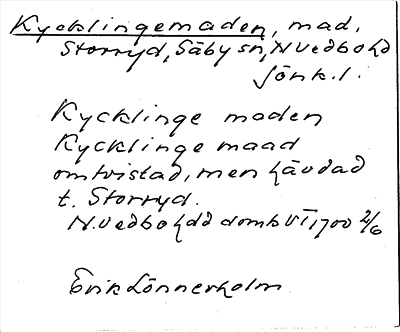 Kycklingemaden, mad.
Storryd, Säby sn, N Vedbo hd
Jönk.l.
Kycklinge maden
Kycklinge maad
omtvistad, men hävdad
t. Storryd.
N. Vedbo hdd domb VI, 1700 2/6
Erik Lönnerholm